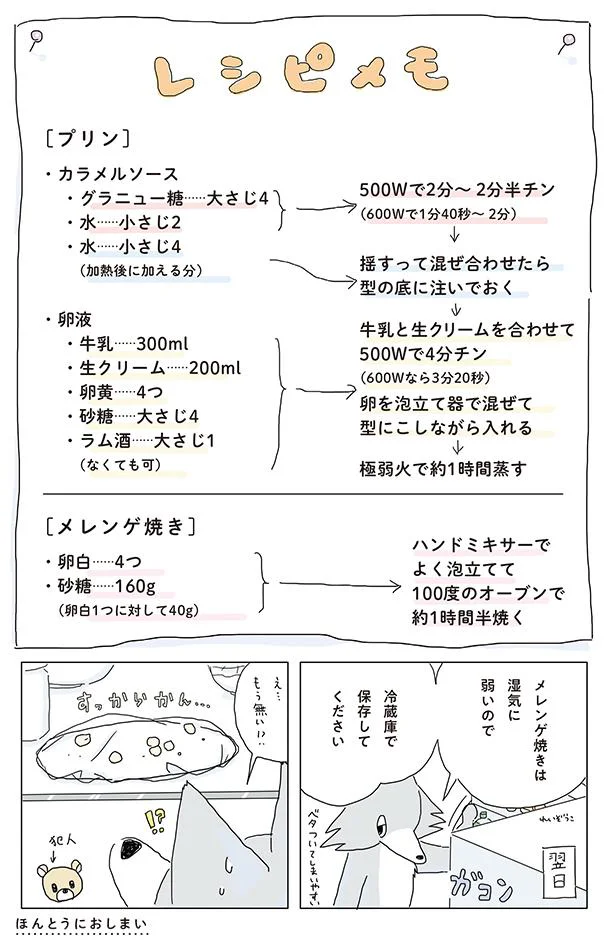 レシピメモ
[プリン]
・カラメルソース
・グラニュー糖……大さじ4
・水……小さじ2
・水……小さじ4
(加熱後に加える分)
500Wで2分〜2分半チン
(600Wで1分40秒〜2分)
↓
揺すって混ぜ合わせたら
型の底に注いでおく
↓
・卵液
・牛乳……300ml
・生クリーム……200ml
・卵黄……4つ
・砂糖……大さじ4
・ラム酒……大さじ1
(なくても可)
牛乳と生クリームを合わせて
500Wで4分チン
(600Wなら3分20秒)
卵を泡立て器で混ぜて
型にこしながら入れる
↓
極弱火で約1時間蒸す
[メレンゲ焼き]
・卵白……4つ
・砂糖……160g
(卵白1つに対して40g)
ハンドミキサーで
よく泡立てて
100度のオーブンで
約1時間半焼く
メレンゲ焼きは
湿気に
弱いので
冷蔵庫で
保存して
ください
れいぞうこ
翌日
ガコン
ベタついてしまいやすい
え…
もう無い!?
すっからかん…
!?
犯人
↓
ほんとうにおしまい